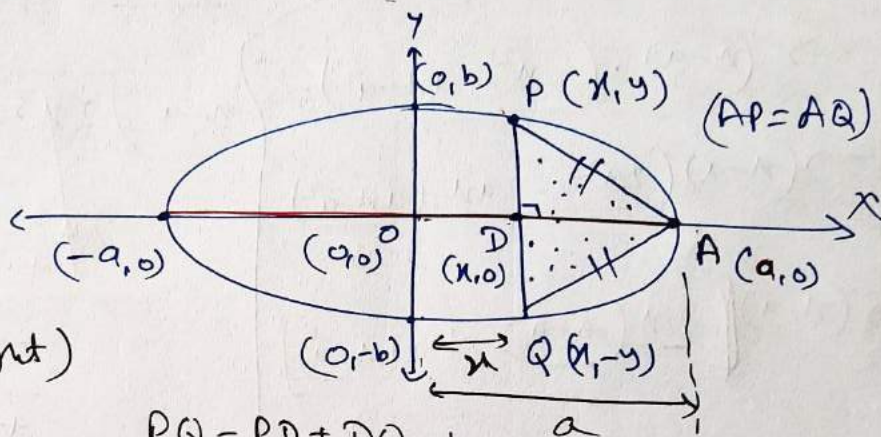 Y
(0,b)
P (x,y)
(AP=AQ)
X
(-a,0)
(0,0) O
D
(x,0)
A (a,0)
(0,-b)
x
Q (x,-y)
a
PQ = PD + DQ